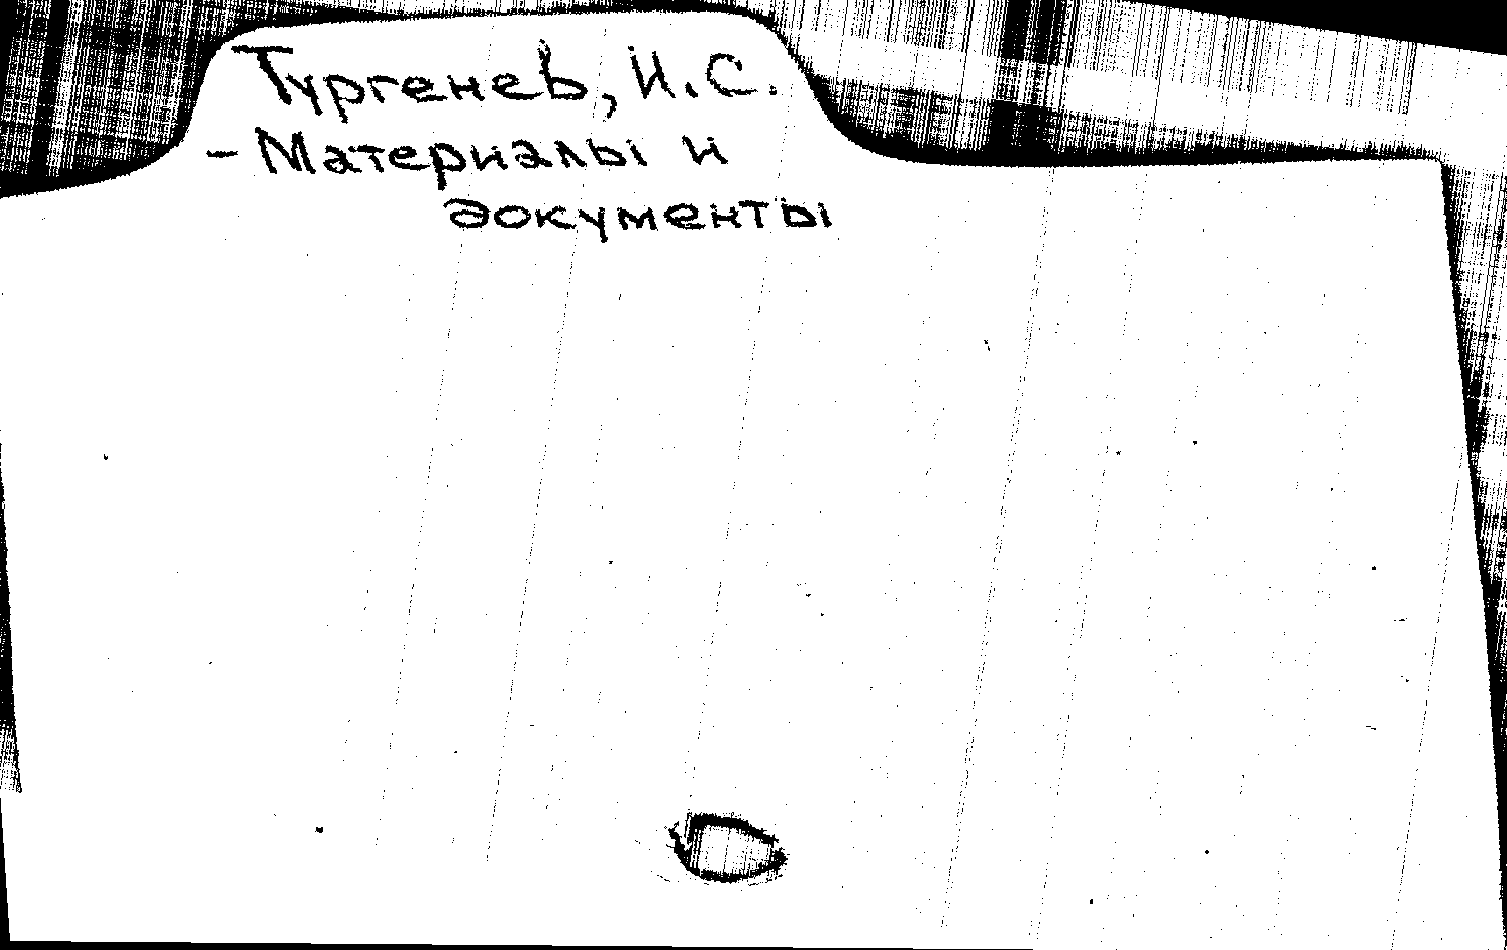 Тургенев, И.С.
- Материалы и
документы